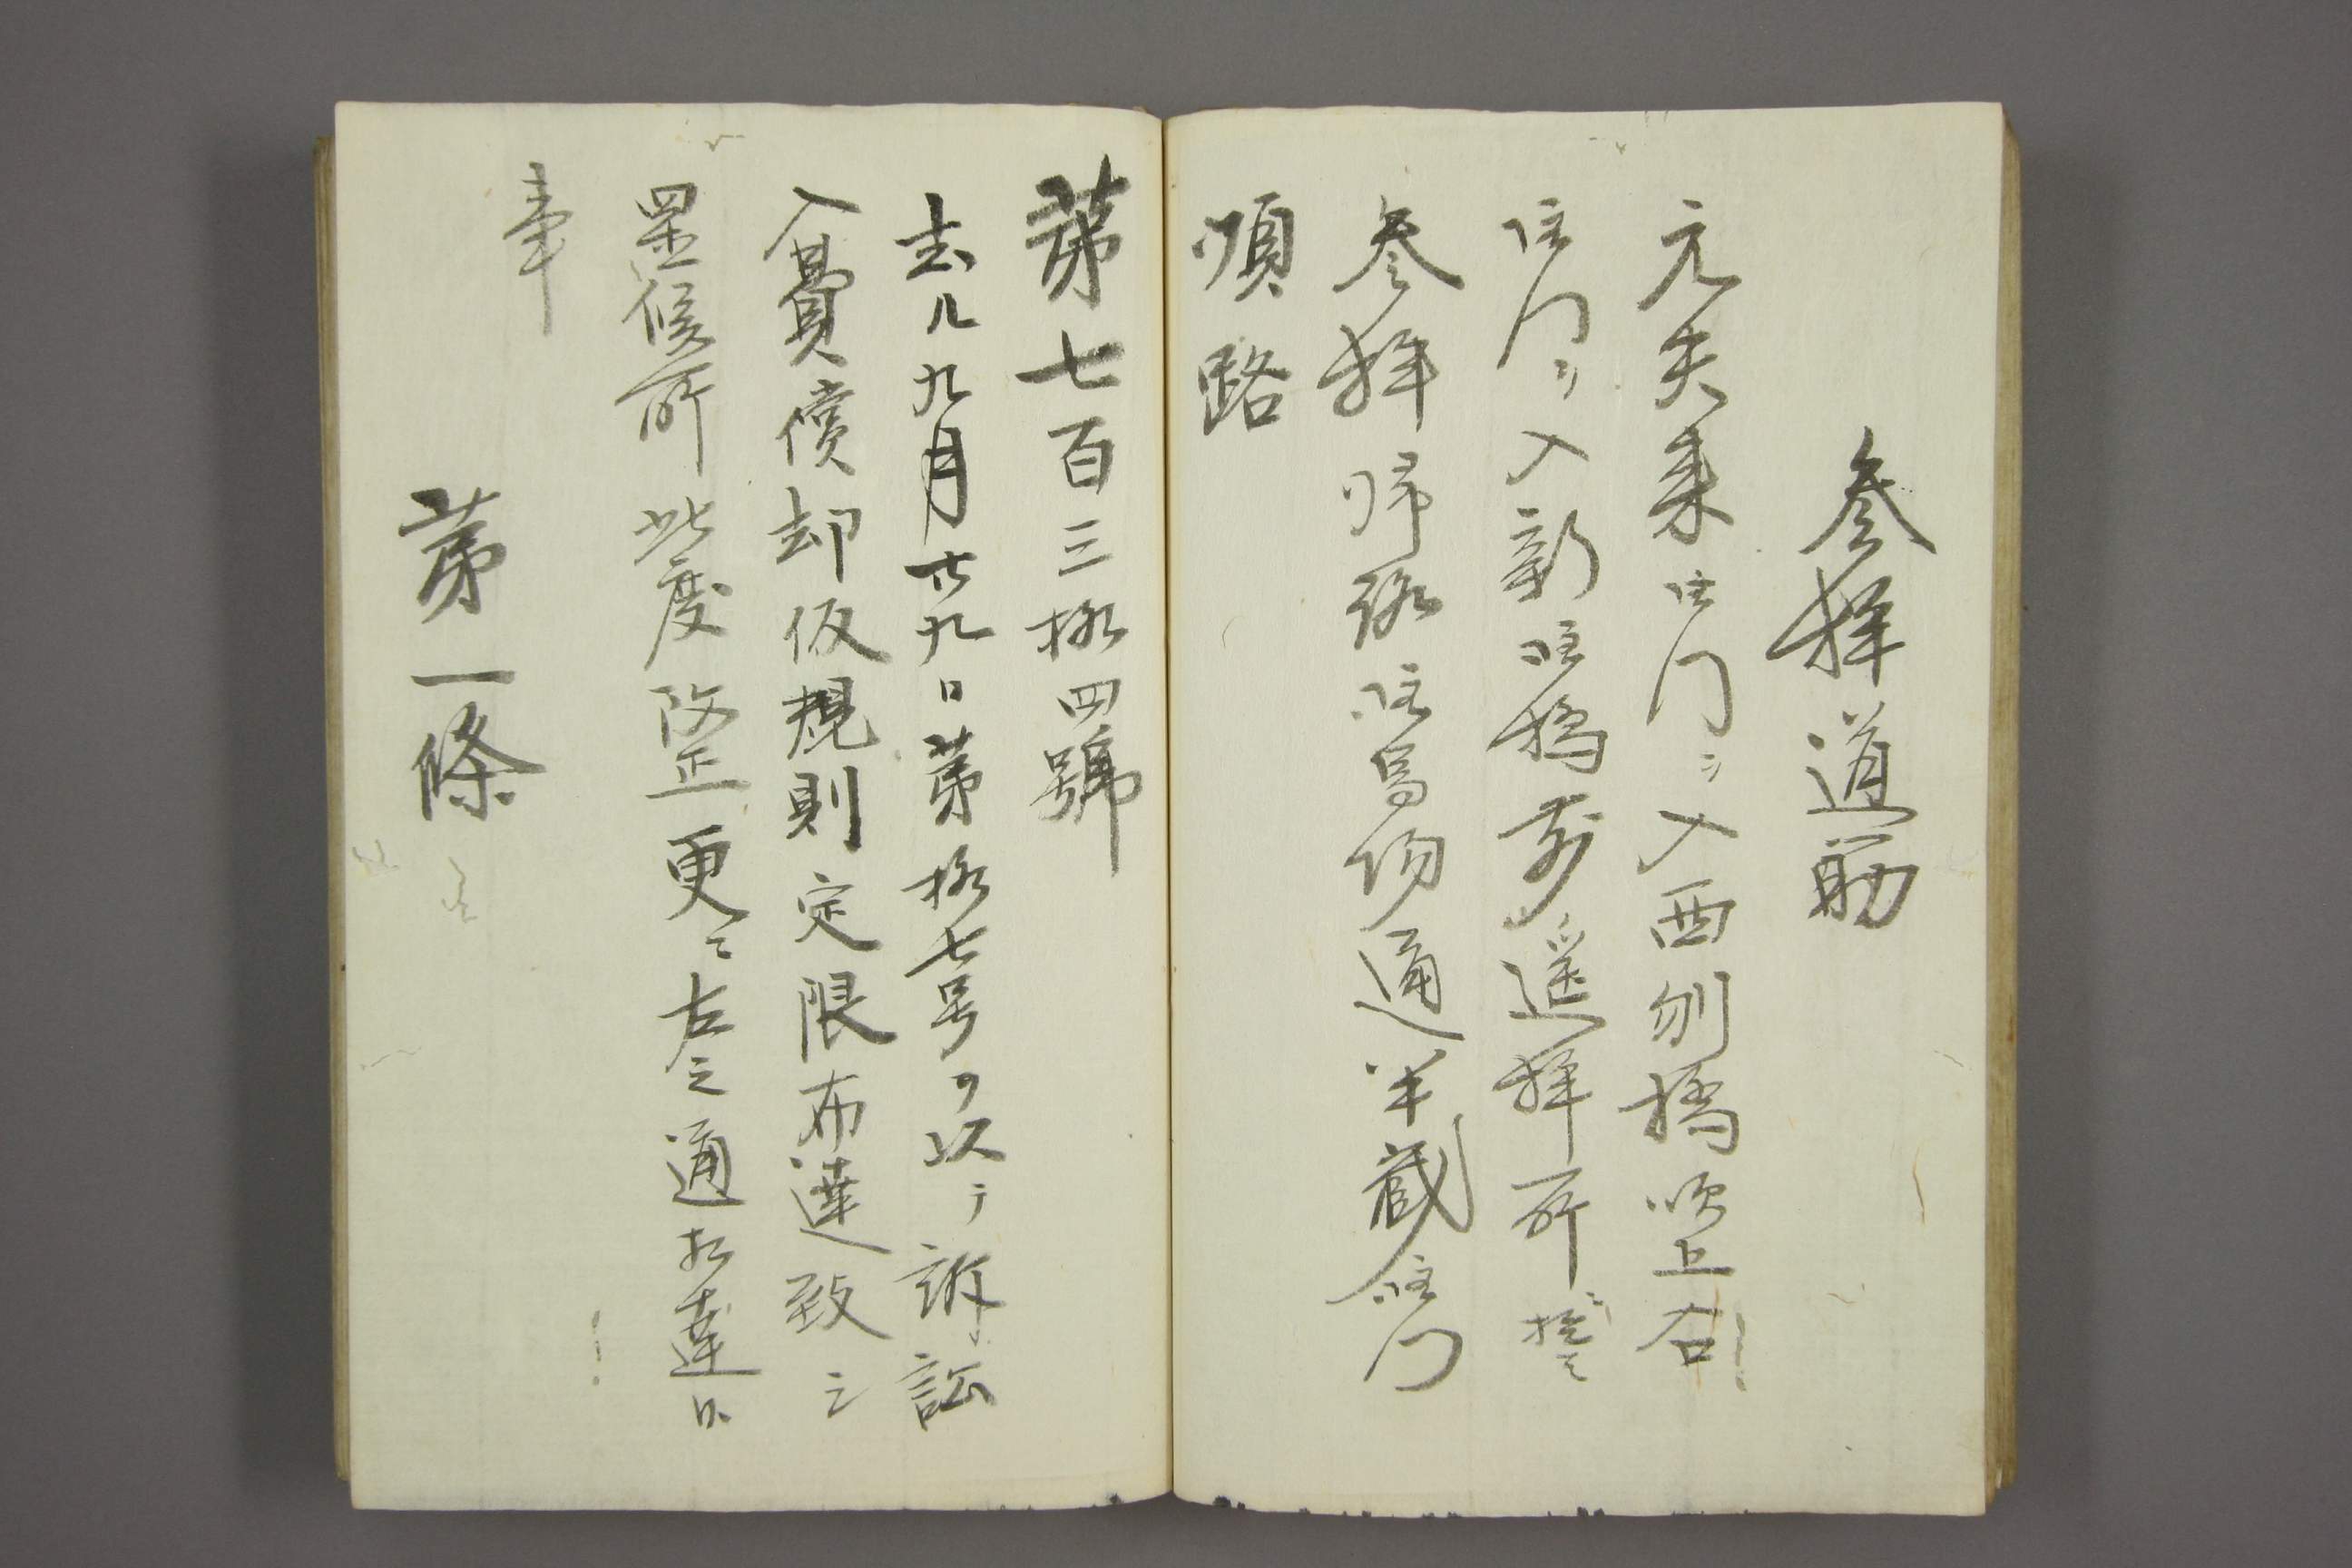 参拝道筋
元矢来御門ヨリ入西刎橋吹上右
御門ヨリ入新御橋前遥拝所ニ於テ
参拝帰路御馬場通半蔵御門
順路
第七百三拾四號
去ル九月廿九日第拾七号ヲ以テ訴訟
入費償却仮規則定限布達致シ
置候所此度改正更ニ左之通相達候
事
第一條